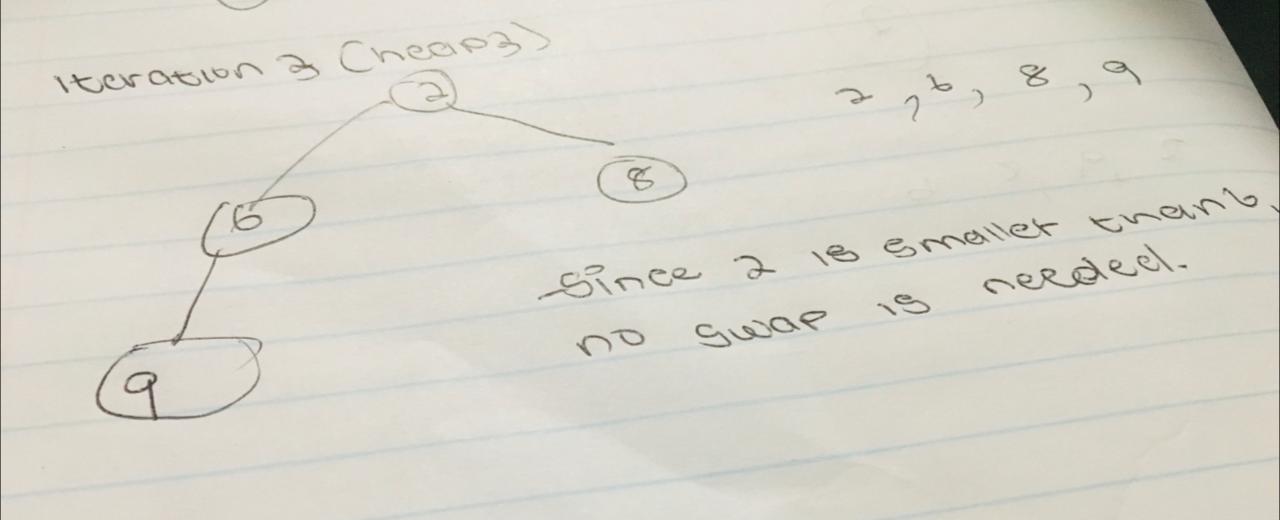 Iteration 3 (heap3)
2
2, 6, 8, 9
8
6
since 2 is smaller than 6,
no swap is needed.
9